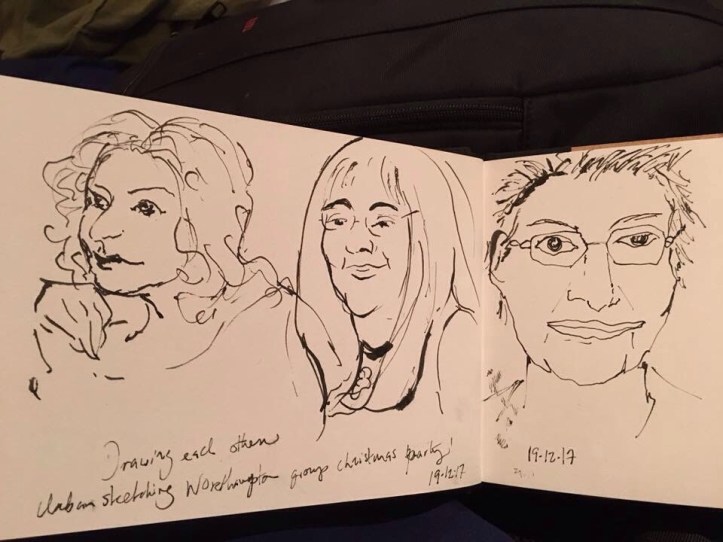 Drawing each other
Urban sketching Wolverhampton group christmas party!
19·12·17
19·12·17